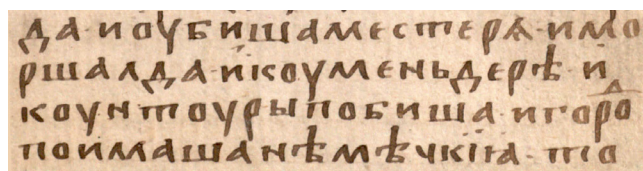 да·иоубишаместерѧ·имо
ршалда·ѝкоуменьдерѣ·ѝ
коунтоурыпобиша·игоро
поимашанѣмѣчкїꙗ·то